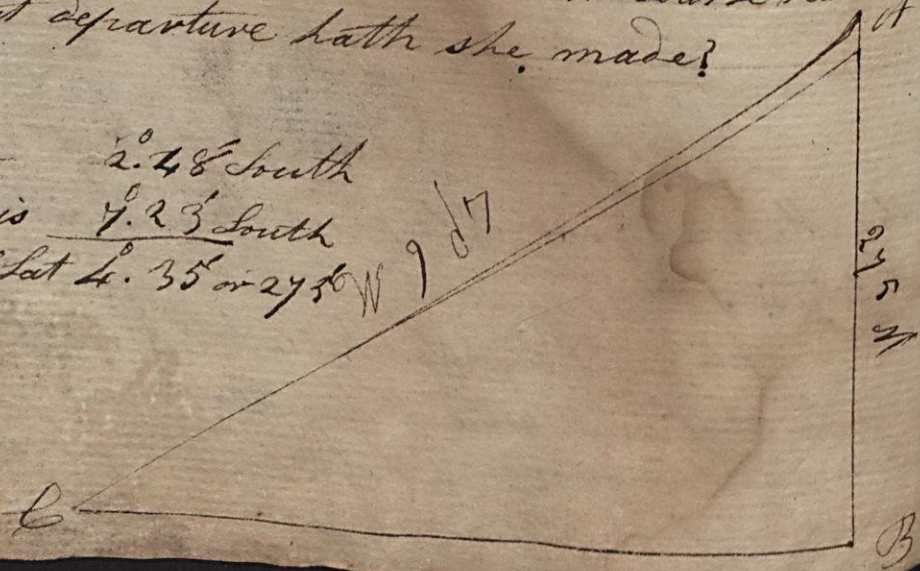 departure hath she made?
2°.48' South
is 7°.23' South
Lat 4°.35' or 275
A
275
C
B